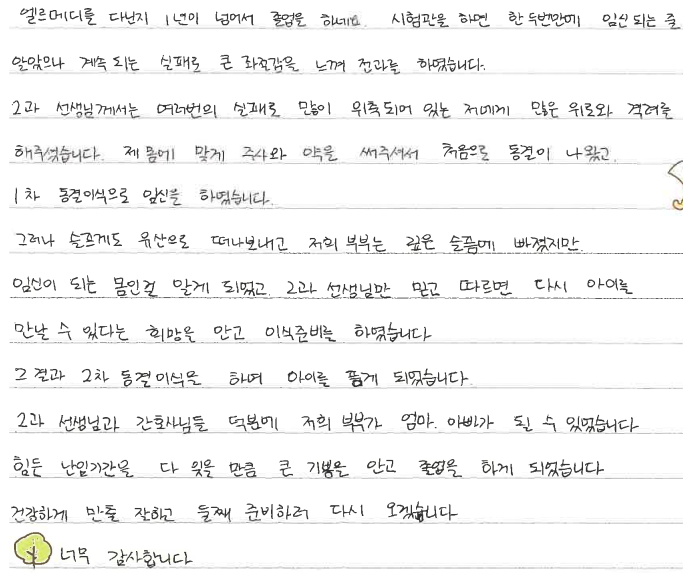 엘르메디를 다닌지 1년이 넘어서 졸업을 하네요. 시험관을 하면 한 두번만에 임신 되는 줄
알았으나 계속 되는 실패로 큰 좌절감을 느껴 전과를 하였습니다.
2과 선생님께서는 여러번의 실패로 많이 위축되어 있는 저에게 많은 위로와 격려를
해주셨습니다. 제 몸에 맞게 주사와 약을 써주셔서 처음으로 동결이 나왔고.
1차 동결이식으로 임신을 하였습니다.
그러나 슬프게도 유산으로 떠나보내고 저희 부부는 깊은 슬픔에 빠졌지만.
임신이 되는 몸인걸 알게 되었고. 2과 선생님만 믿고 따르면 다시 아이를
만날 수 있다는 희망을 안고 이식준비를 하였습니다
그 결과 2차 동결이식을 하여 아이를 품게 되었습니다.
2과 선생님과 간호사님들 덕분에 저희 부부가 엄마. 아빠가 될 수 있었습니다
힘든 난임기간을 다 잊을 만큼 큰 기쁨을 안고 졸업을 하게 되었습니다
건강하게 만출 잘하고 둘째 준비하러 다시 오겠습니다
너무 감사합니다